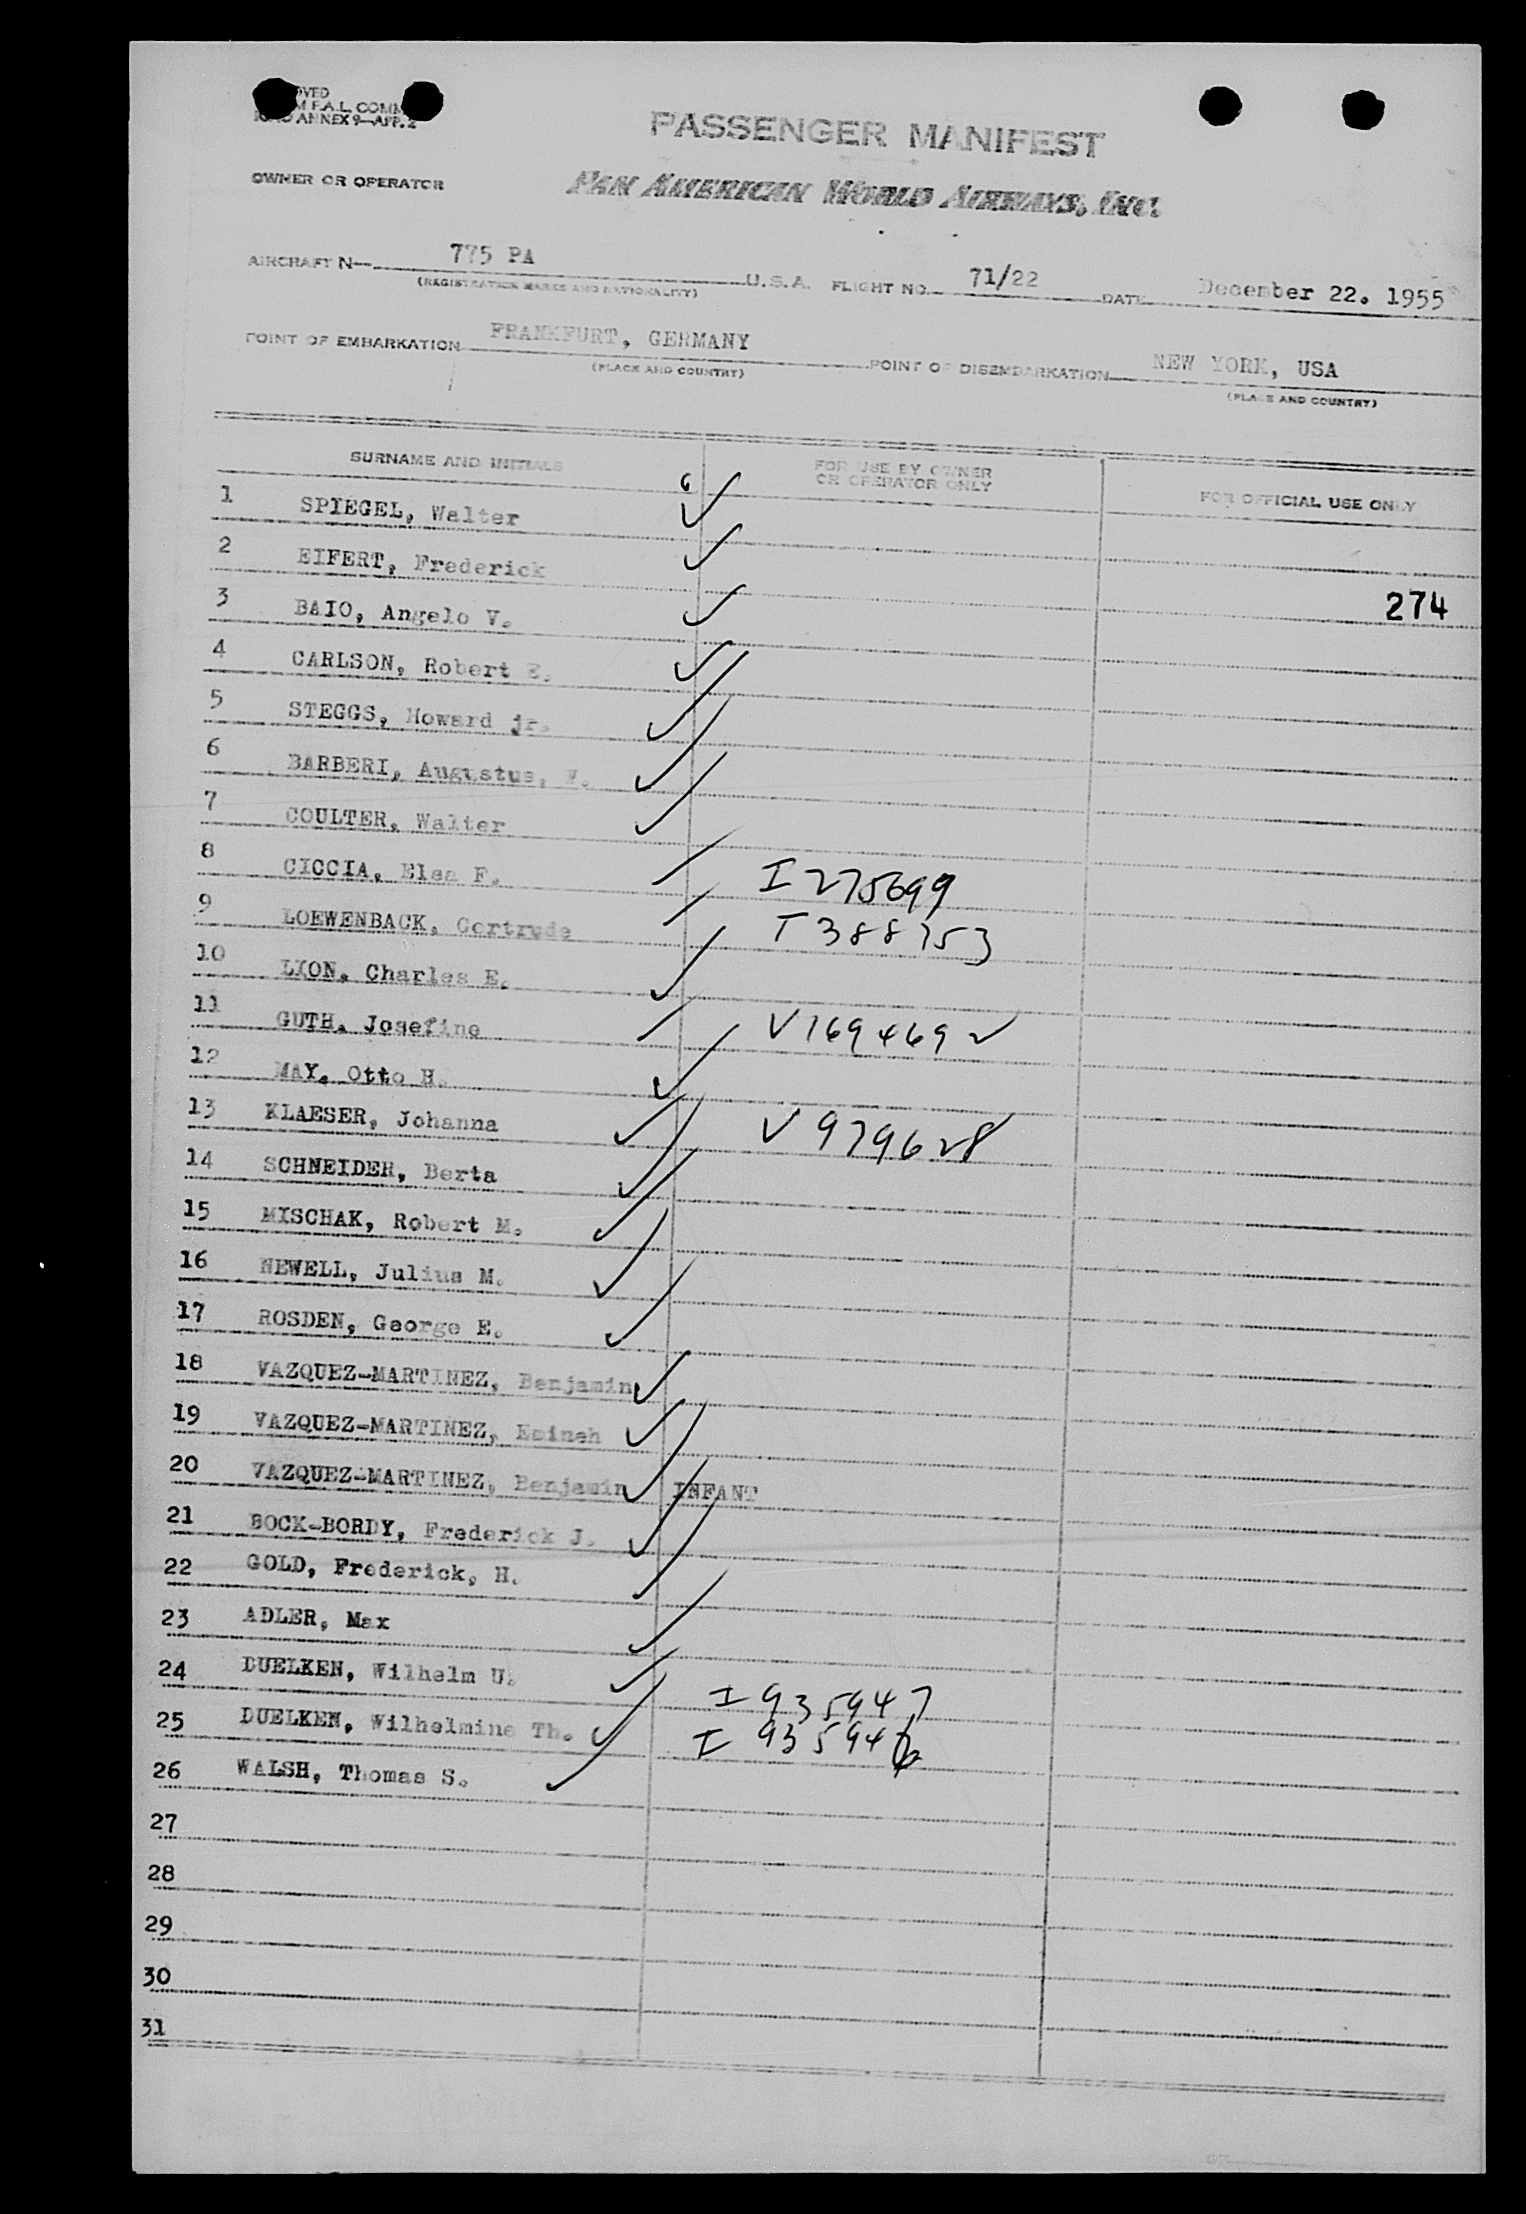 OVED
M F.A.L. COMM
ANNEX 9—APP. 2
PASSENGER MANIFEST
OWNER OR OPERATOR PAN AMERICAN WORLD AIRWAYS, INC.
AIRCRAFT N— 775 PA U.S.A. FLIGHT NO. 71/22 DATE December 22. 1955
(REGISTRATION MARKS AND NATIONALITY)
POINT OF EMBARKATION FRANKFURT, GERMANY POINT OF DISEMBARKATION NEW YORK, USA
(PLACE AND COUNTRY) (PLACE AND COUNTRY)
SURNAME AND INITIALS FOR USE BY OWNER OR OPERATOR ONLY FOR OFFICIAL USE ONLY
1 SPIEGEL, Walter ✓
2 EIFERT, Frederick ✓
274
3 BAIO, Angelo V. ✓
4 CARLSON, Robert E. ✓
5 STEGGS, Howard jr. ✓
6 BARBERI, Augustus, ✓
7 COULTER, Walter ✓
8 CICCIA, Elsa F. / I 275699
9 LOEWENBACK, Gertrude / T 388753
10 LION, Charles E. ✓
11 GUTH, Josefine / V 169469 ✓
12 MAY, Otto H. ✓
13 KLAESER, Johanna ✓ V 979628
14 SCHNEIDER, Berta ✓
15 MISCHAK, Robert M. ✓
16 NEWELL, Julius M. ✓
17 ROSDEN, George E. ✓
18 VAZQUEZ-MARTINEZ, Benjamin ✓
19 VAZQUEZ-MARTINEZ, Emineh ✓
20 VAZQUEZ-MARTINEZ, Benjamin ✓ INFANT
21 BOCK-BORDY, Frederick J. ✓
22 GOLD, Frederick, H. ✓
23 ADLER, Max ✓
24 DUELKEN, Wilhelm U. ✓ I 935947
25 DUELKEN, Wilhelmine Th. ✓ I 935946
26 WALSH, Thomas S. ✓
27
28
29
30
31